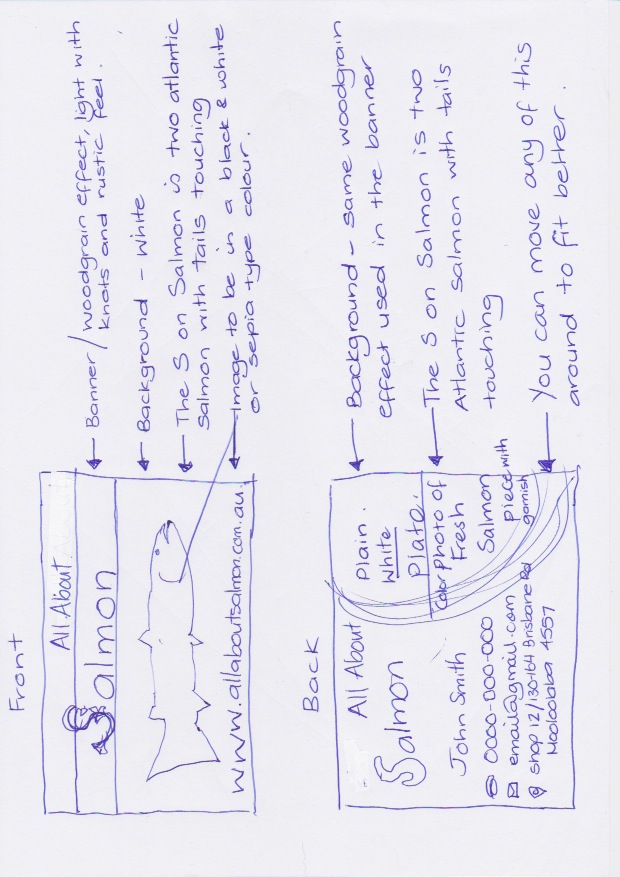 Front
All About
Salmon
www.allaboutsalmon.com.au
Banner/woodgrain effect, light with
knots and rustic feel.
Background - White
The S on Salmon is two atlantic
salmon with tails touching
Image to be in a black & white
or sepia type colour.
Back
All About
Salmon
John Smith
0000-000-000
email@gmail.com
Shop 12/130-164 Brisbane Rd
Mooloolaba 4557
Plain
White
Plate.
Color Photo of
Fresh
Salmon
piece with
garnish
Background - same woodgrain
effect used in the banner
The S on Salmon is two
Atlantic salmon with tails
touching
You can move any of this
around to fit better.